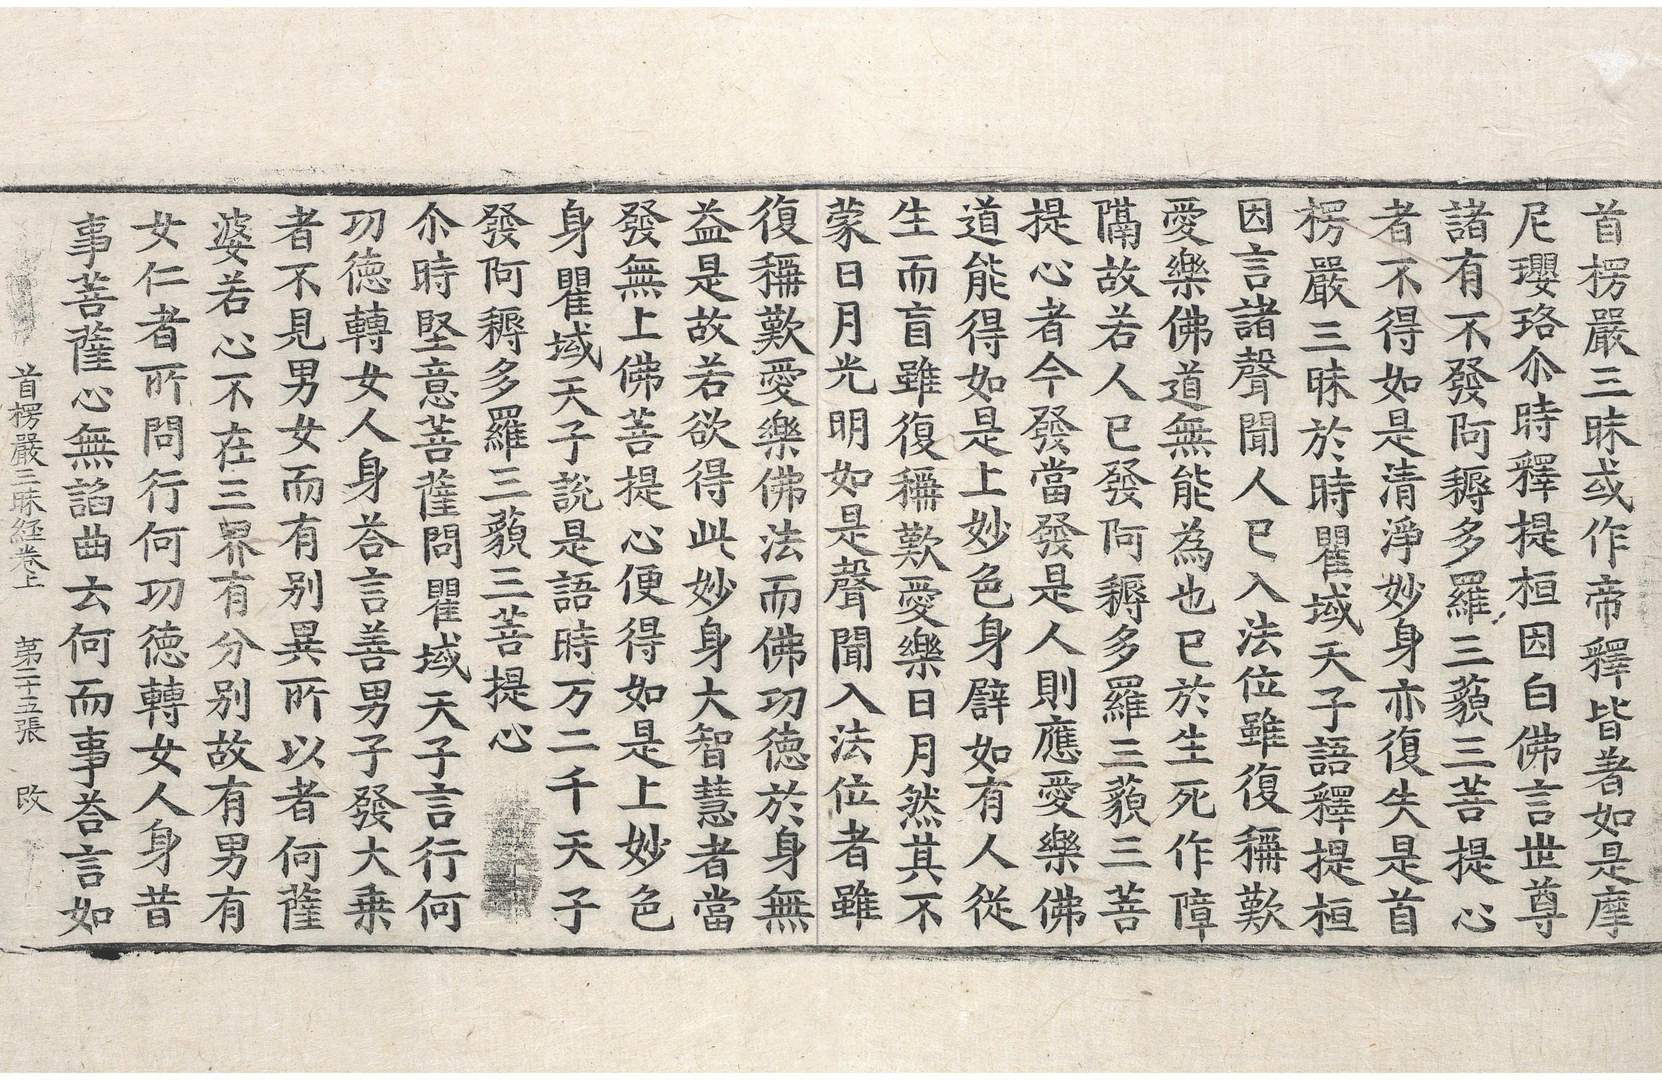 首楞嚴三昧或作帝釋皆著如是摩
尼瓔珞尒時釋提桓因白佛言世尊
諸有不發阿耨多羅三藐三菩提心
者不得如是清淨妙身亦復失是首
楞嚴三昧於時瞿域天子語釋提桓
因言諸聲聞人已入法位雖復稱歎
愛樂佛道無能為也已於生死作障
隔故若人已發阿耨多羅三藐三菩
提心者今發當發是人則應愛樂佛
道能得如是上妙色身譬如有人從
生而盲雖復稱歎愛樂日月然其不
蒙日月光明如是聲聞入法位者雖
復稱歎愛樂佛法而佛功德於身無
益是故若欲得此妙身大智慧者當
發無上佛菩提心便得如是上妙色
身瞿域天子說是語時万二千天子
發阿耨多羅三藐三菩提心
尒時堅意菩薩問瞿域天子言行何
功德轉女人身荅言善男子發大乗
者不見男女而有别異所以者何薩
婆若心不在三界有分别故有男有
女仁者所問行何功德轉女人身昔
事菩薩心無諂曲云何而事荅言如
首楞嚴三昧経卷上 第二十五張 改